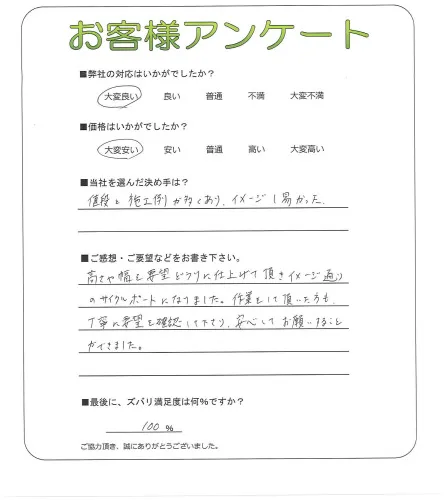 お客様アンケート
■弊社の対応はいかがでしたか?
大変良い 良い 普通 不満 大変不満
■価格はいかがでしたか?
大変安い 安い 普通 高い 大変高い
■当社を選んだ決め手は?
値段と施工例が多くあり、イメージし易かった。
■ご感想・ご要望などをお書き下さい。
高さや幅も要望どうりに仕上げて頂きイメージ通り
のサイクルポートになりました。作業をして頂いた方も、
丁寧に要望を確認して下さり、安心してお願いすること
ができました。
■最後に、ズバリ満足度は何%ですか?
100 %
ご協力頂き、誠にありがとうございました。